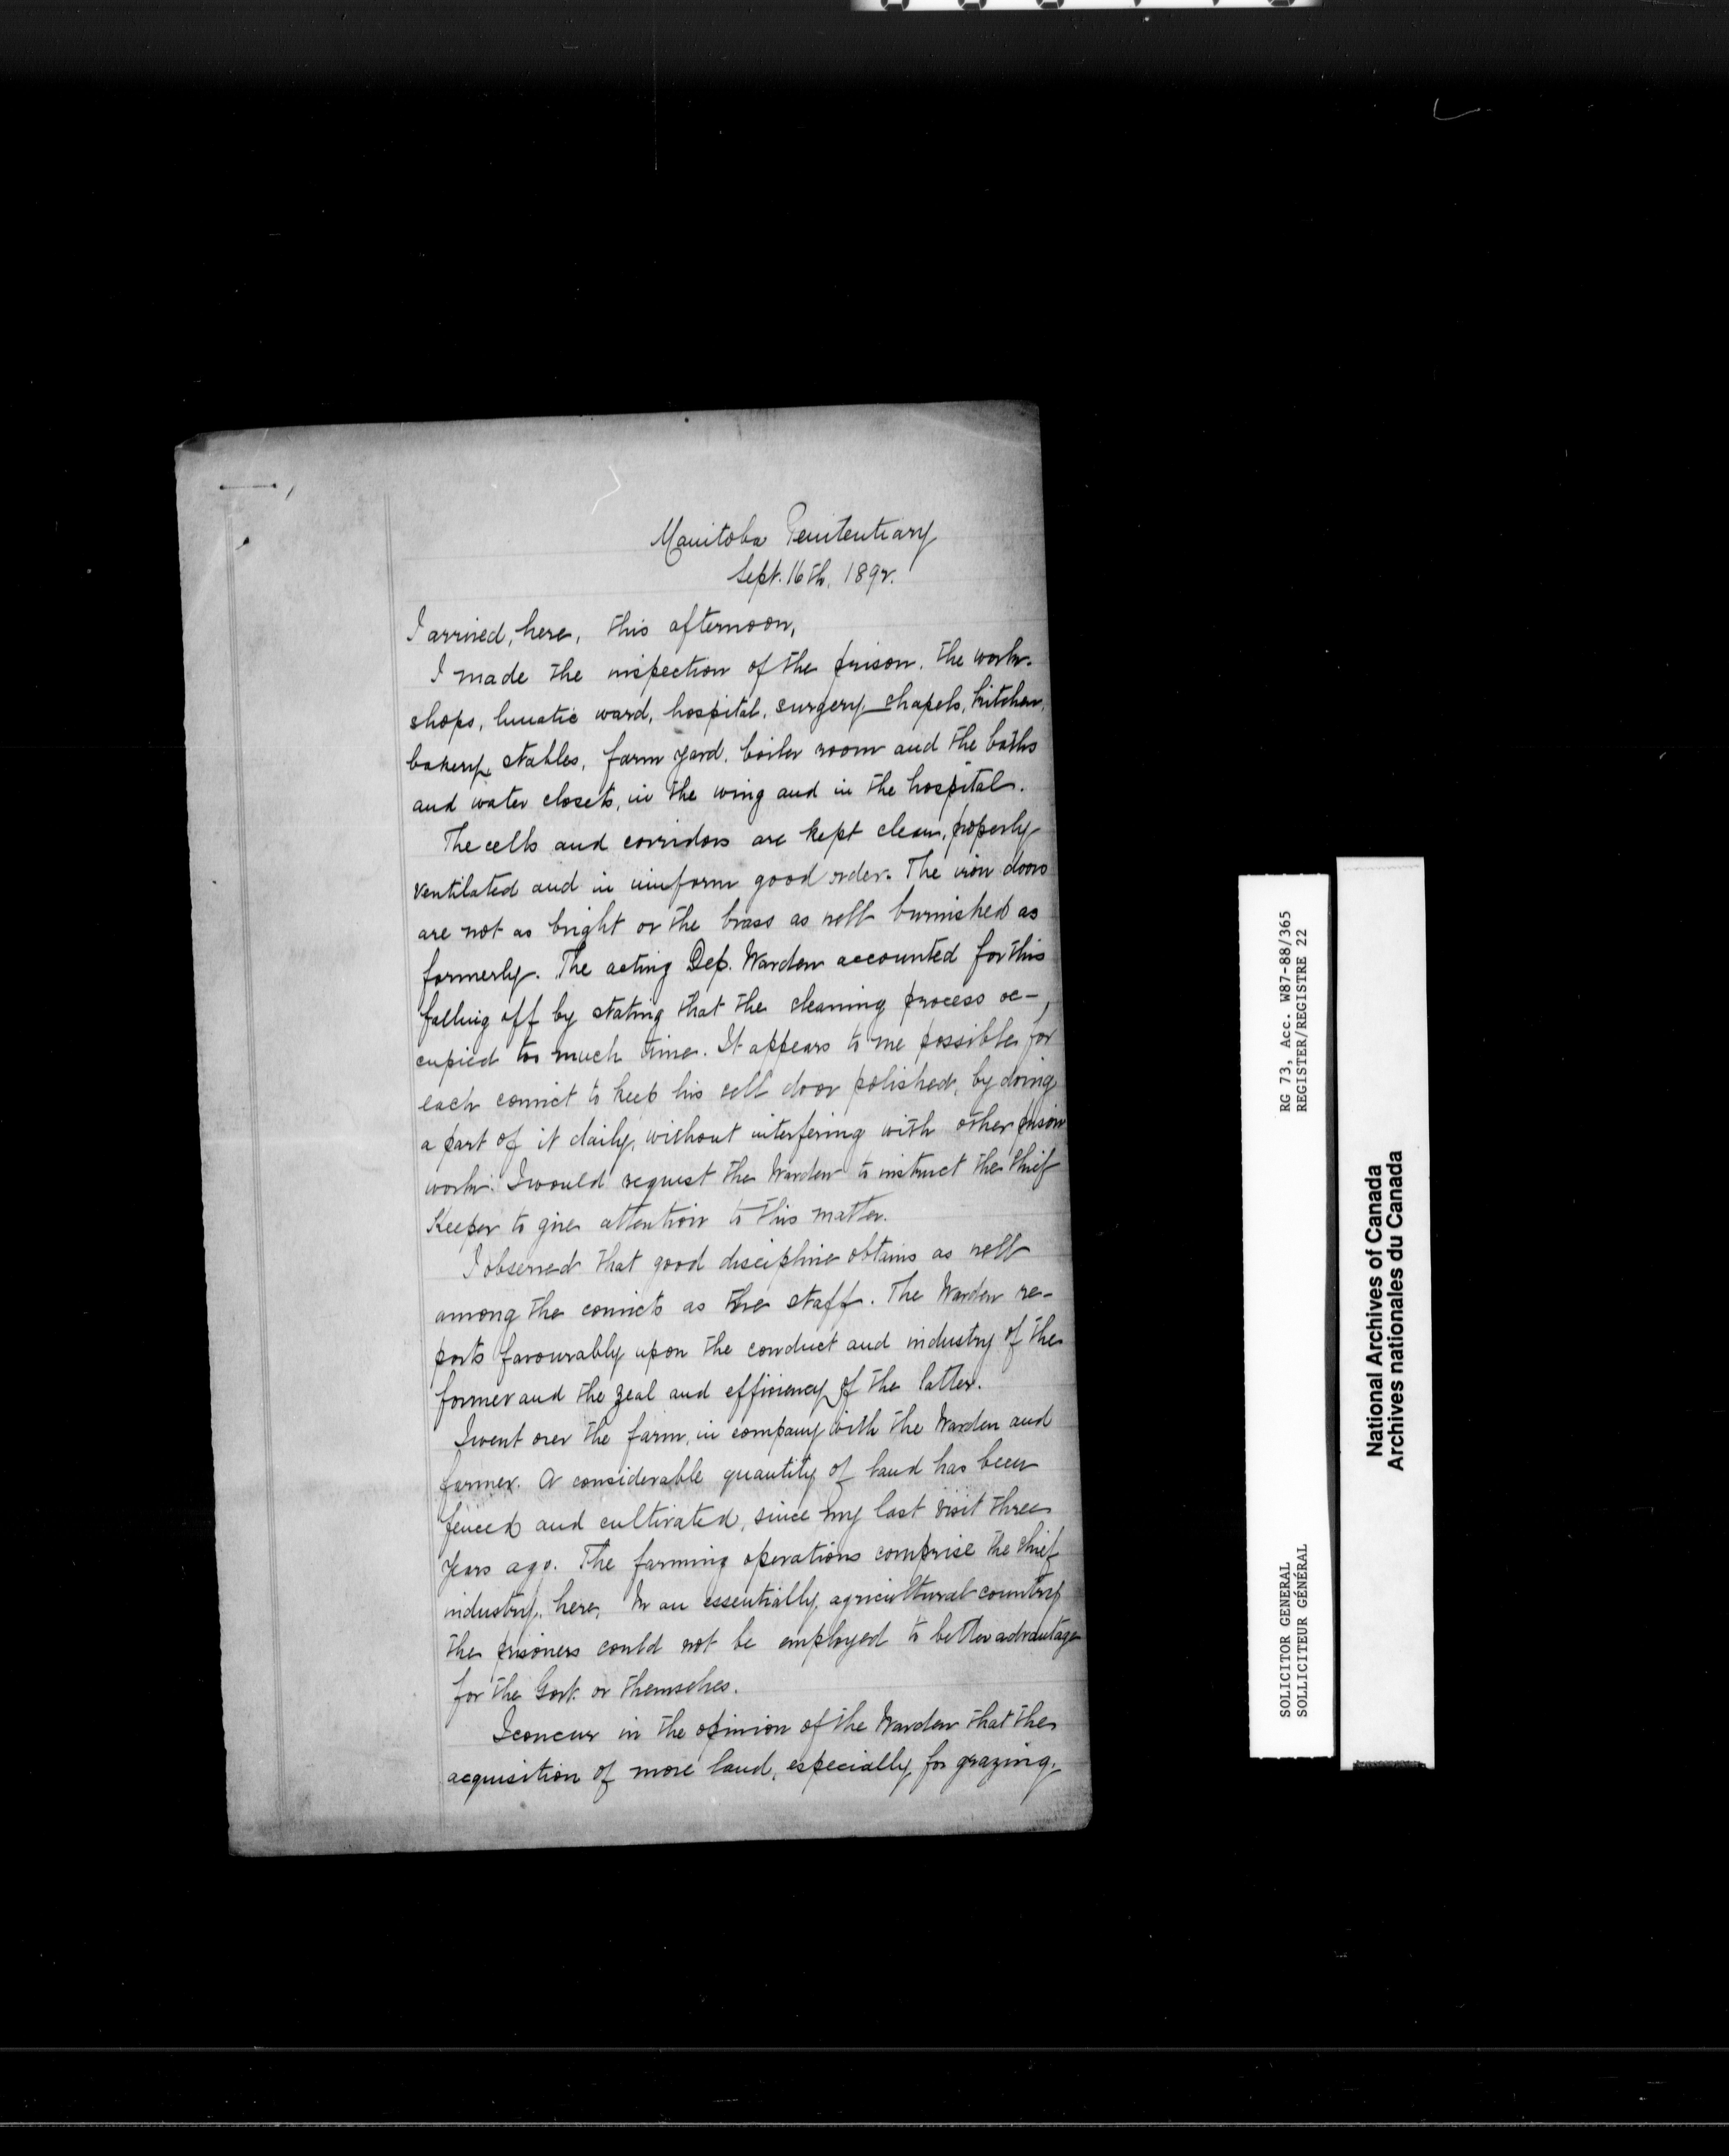 Manitoba Penitentiary
Sept. 16th, 1892.
I arrived, here, this afternoon,
I made the inspection of the prison, the work-
shops, lunatic ward, hospital, surgery, chapels, kitchen,
bakery, stables, farm yard, boiler room and the baths
and water closets, in the wing and in the hospital.
The cells and corridors are kept clean, properly
ventilated and in uniform good order. The iron doors
are not as bright or the brass as well burnished as
formerly. The acting Dep. Warden accounted for this
falling off by stating that the cleaning process oc-
cupied too much time. It appears to me possible for
each convict to keep his cell door polished, by doing
a part of it daily, without interfering with other prison
work. I would request the Warden to instruct the Chief
Keeper to give attention to this matter.
I observed that good discipline obtains as well
among the convicts as the staff. The Warden re-
ports favourably upon the conduct and industry of the
former and the zeal and efficiency of the latter.
I went over the farm, in company with the Warden and
farmer. A considerable quantity of land has been
fenced and cultivated, since my last visit three
years ago. The farming operations comprise the chief
industry, here. In an essentially agricultural country
the prisoners could not be employed to better advantage
for the Govt. or themselves.
I concur in the opinion of the Warden that the
acquisition of more land, especially, for grazing,
RG 73, Acc. W87-88/365
REGISTER/REGISTRE 22
SOLICITOR GENERAL
SOLLICITEUR GÉNÉRAL
National Archives of Canada
Archives nationales du Canada